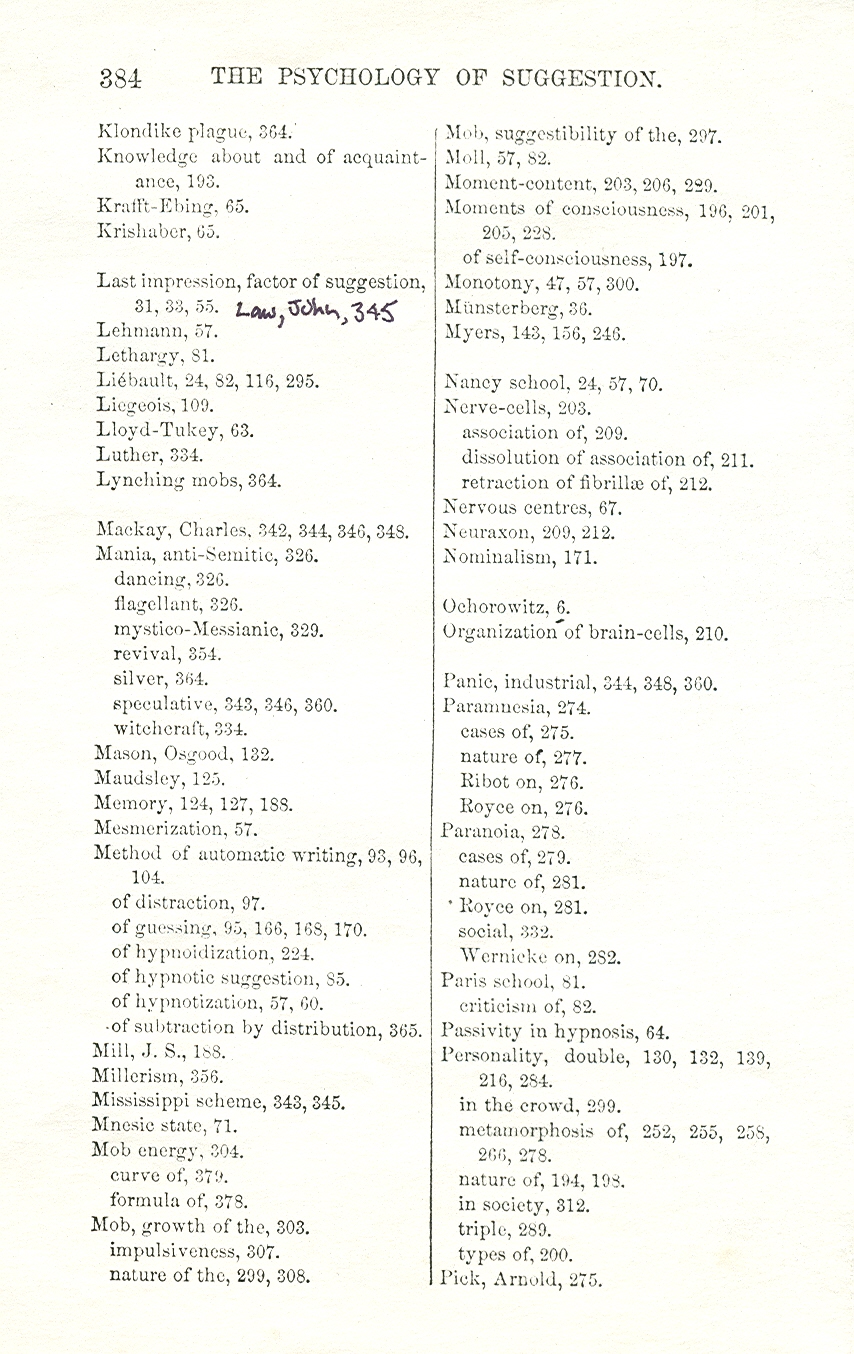 384 THE PSYCHOLOGY OF SUGGESTION.
Klondike plague, 364.
Knowledge about and of acquaint-
ance, 193.
Krafft-Ebing, 65.
Krishaber, 65.
Last impression, factor of suggestion,
31, 33, 55. Law, John, 345
Lehmann, 57.
Lethargy, 81.
Liébault, 24, 82, 116, 295.
Liegeois, 109.
Lloyd-Tukey, 63.
Luther, 334.
Lynching mobs, 364.
Mackay, Charles, 342, 344, 346, 348.
Mania, anti-Semitic, 326.
dancing, 326.
flagellant, 326.
mystico-Messianic, 329.
revival, 354.
silver, 364.
speculative, 343, 346, 360.
witchcraft, 334.
Mason, Osgood, 132.
Maudsley, 125.
Memory, 124, 127, 188.
Mesmerization, 57.
Method of automatic writing, 93, 96,
104.
of distraction, 97.
of guessing, 95, 166, 168, 170.
of hypnoidization, 224.
of hypnotic suggestion, 85.
of hypnotization, 57, 60.
of subtraction by distribution, 365.
Mill, J. S., 188.
Millerism, 356.
Mississippi scheme, 343, 345.
Mnesic state, 71.
Mob energy, 304.
curve of, 379.
formula of, 378.
Mob, growth of the, 303.
impulsiveness, 307.
nature of the, 299, 308.
Mob, suggestibility of the, 297.
Moll, 57, 82.
Moment-content, 203, 206, 229.
Moments of consciousness, 196, 201,
205, 228.
of self-consciousness, 197.
Monotony, 47, 57, 300.
Münsterberg, 36.
Myers, 143, 156, 246.
Nancy school, 24, 57, 70.
Nerve-cells, 203.
association of, 209.
dissolution of association of, 211.
retraction of fibrillæ of, 212.
Nervous centres, 67.
Neuraxon, 209, 212.
Nominalism, 171.
Ochorowitz, 6.
Organization of brain-cells, 210.
Panic, industrial, 344, 348, 360.
Paramnesia, 274.
cases of, 275.
nature of, 277.
Ribot on, 276.
Royce on, 276.
Paranoia, 278.
cases of, 279.
nature of, 281.
Royce on, 281.
social, 332.
Wernicke on, 282.
Paris school, 81.
criticism of, 82.
Passivity in hypnosis, 64.
Personality, double, 130, 132, 139,
216, 284.
in the crowd, 299.
metamorphosis of, 252, 255, 258,
266, 278.
nature of, 194, 198.
in society, 312.
triple, 289.
types of, 200.
Pick, Arnold, 275.